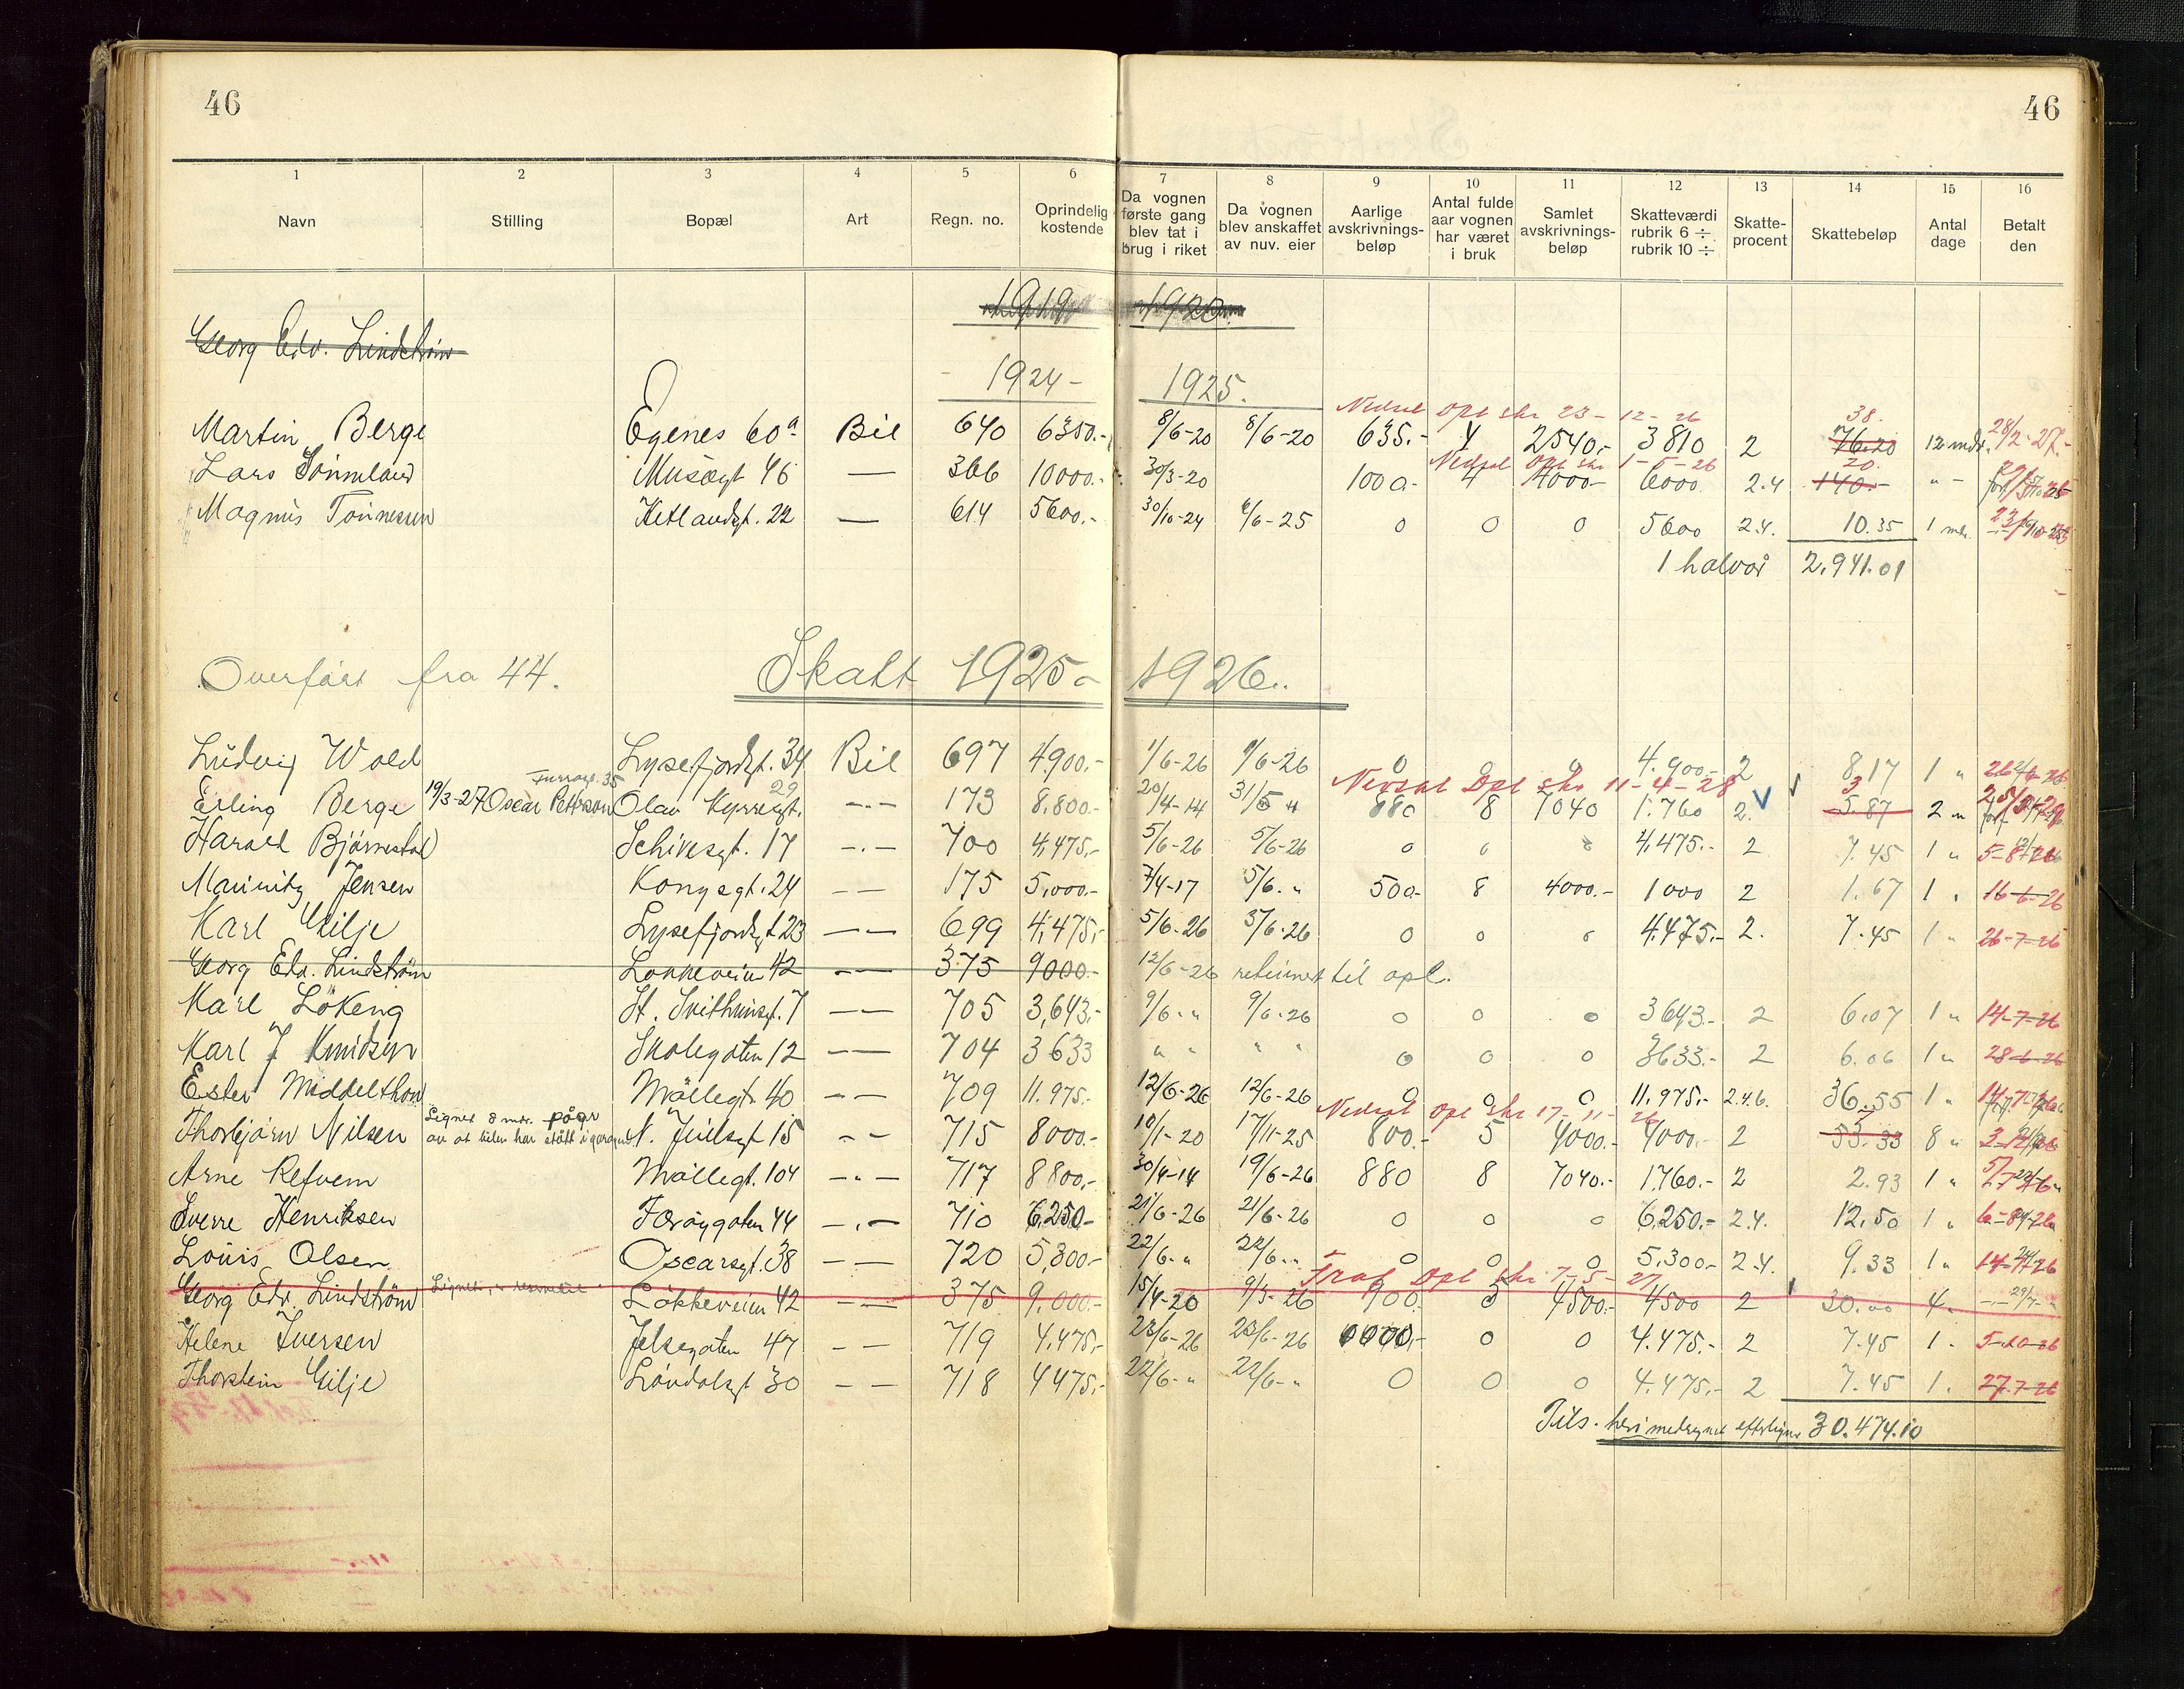 46 46
1 2 3 4 5 6 7 8 9 10 11 12 13 14 15 16
Navn Stilling Bopæl Art Regn. no. Oprindelig kostende Da vognen første gang blev tat i brug i riket Da vognen blev anskaffet av nuv. eier Aarlige avskrivnings-beløp Antal fulde aar vognen har været i bruk Samlet avskrivnings-beløp Skatteværdi rubrik 6 ÷ rubrik 10 ÷ Skatte-procent Skattebeløp Antal dage Betalt den
1919 1920
Georg Edv. Lindström
1924 - 1925.
Nedsat Opl skr 23-12-26 38.
Martin Berge Egenes 60a Bil 640 6350.- 8/6-20 8/6-20 635.- 4 2540.- 3810 2 76.20 12 mdr. 28/2-27.-
Nedsat Opl skr 1-5-26 20.
Lars Musægt 46 — 366 10000.- 30/3-20 1000.- 4 4000- 6000 2.4 140.- " -
Magnus Tönnesen Ketlandsgt. 22 — 614 5600.- 30/10-24 6/6-25 0 0 0 5600 2.4. 10.35 1 mdr.
1 halvår 2.941.01
Overfört fra 44. Skatt 1925- 1926.
Ludvig Wold Lysefjordgt. 34 Bil 697 4.900.- 1/6-26 1/6-26 0 0 0 4.900.- 2 8.17 1 "
Nedsat Opl skr 11-4-28 3
Erling Berge 19/3-27 Oscar Petterson Olav Kyrresgt. 29 -.- 173 8.800.- 20/4-14 31/5 " 880 8 7040 1.760 2. 5.87 2 "
Harald Björnestad Schivesgt. 17 -.- 700 4.475.- 5/6-26 5/6-26 0 0 0 4.475.- 2 7.45 1 "
Mauritz Jensen Kongsgt. 24 -- 175 5.000.- 7/4-17 5/6. " 500.- 8 4000.- 1000 2 1.67 1 " 16-6-26
Karl Gilje Lysefjordgt 23 -- 699 4.475.- 5/6-26 5/6-26 0 0 0 4.475.- 2. 7.45 1 " 26-7-26
Georg Edv. Lindström Lökkeveien 42 -- 375 9000.- 12/6-26 returnert til opl.
Karl Lökeng St. Svithunsgt. 7 -- 705 3,643.- 9/6. " 9/6-26 0 0 0 3643.- 2 6.07 1 " 14-7-26
Karl J Knudsen Skolegaten 12 -- 704 3633 " " " " 0 0 0 3633.- 2 6.06 1 " 28-6-26
Ester Middelthon Möllegt. 40 -- 709 11.975.- 12/6-26 12/6-26 0 0 0 11.975.- 2.4.6. 36.55 1 "
Lignet 8 mdr. pågr Nedsat Opl skr 17-11-26 5
Thorbjörn Nilsen av at bilen har stått i garagen N. Juulsgt 15 -- 715 8000.- 10/1-20 17/11-25 800.- 5 4000.- 4000.- 2 53.33 8 "
Arne Refvem Möllegt. 104 -.- 717 8800.- 30/4-14 19/6-26 880 8 7040.- 1.760.- 2 2.93 1 "
Sverre Henriksen Færöygaten 44 -.- 710 6,250.- 21/6-26 21/6-26 0 0 0 6.250.- 2.4. 12.50 1 "
Louis Olsen Oscarsgt. 38 -- 720 5,300.- 22/6. " 22/6. " 0 0 0 5.300.- 2.4. 9.33 1 "
Fraf Opl skr 7-5-27
Georg Edv. Lindström Lökkeveien 42 -- 375 9.000.- 15/4-20 9/3-26 900. 5 4500.- 4500 2 30.00 4 "
Helene Iversen Jelsegaten 47 -- 719 4.475.- 23/6-26 23/6-26 0 0 4.475.- 2 7.45 1 "
Thorstein Gilje Lövdalsgt 30 -- 718 4475.- 22/6- " 22/6- " 0 0 0 4.475.- 2 7.45 1 " 27-7-26
Tils. heri medregnet 30.474.10